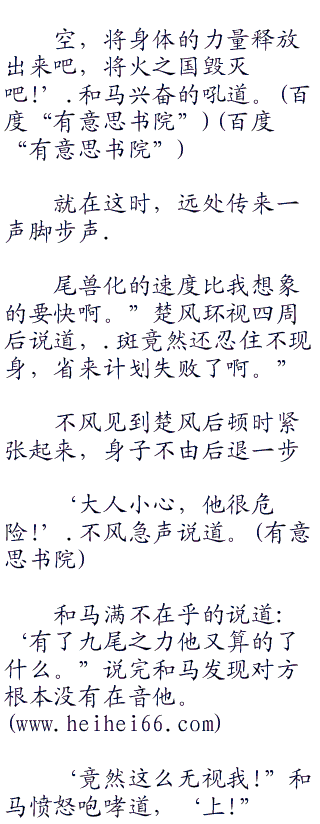 空，将身体的力量释放
出来吧，将火之国毁灭
吧!’.和马兴奋的吼道。(百
度“有意思书院”)(百度
“有意思书院”)
就在这时，远处传来一
声脚步声.
尾兽化的速度比我想象
的要快啊。”楚风环视四周
后说道，.斑竟然还忍住不现
身，省来计划失败了啊。”
不风见到楚风后顿时紧
张起来，身子不由后退一步
‘大人小心，他很危
险!’.不风急声说道。(有意
思书院)
和马满不在乎的说道:
‘有了九尾之力他又算的了
什么。”说完和马发现对方
根本没有在音他。
(www.heihei66.com)
‘竟然这么无视我!”和
马愤怒咆哮道，‘上!”